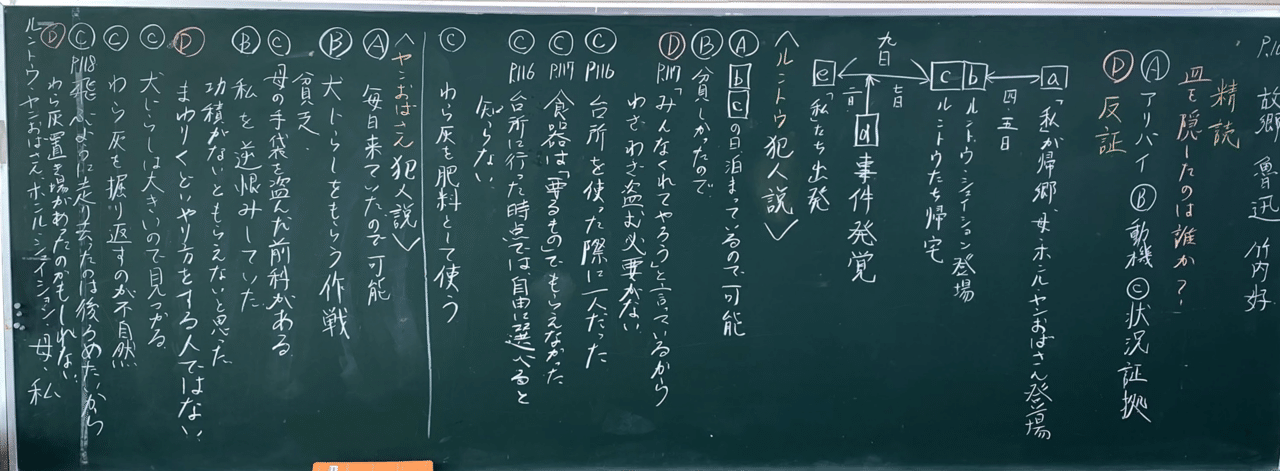 故郷 魯迅 竹内好
精読
皿を隠したのは誰か?!
Ⓐアリバイ Ⓑ動機 Ⓒ状況証拠
Ⓓ反証
a 「私」が帰郷 母、ホンル、ヤンおばさん登場
四、五日
b ルントウ、シュイション登場
c ルントウたち帰宅
七日
九日
d 事件発覚
二日
e 「私」たち出発
〈ルントウ犯人説〉
Ⓐ b c の日泊まっているので可能
Ⓑ 貧しかったので
Ⓓ P.117 「みんなくれてやろう」と言っているから
わざわざ盗む必要がない
Ⓒ P.116 台所を使った際に一人だった
Ⓒ P.117 食器は「要るもの」でもらえなかった
Ⓒ P.116 台所に行った時点では自由に選べると
知らない
Ⓒ わら灰を肥料として使う
〈ヤンおばさん犯人説〉
Ⓐ 毎日来ていたので可能
Ⓑ 犬じらしをもらう作戦
貧乏、
Ⓒ 母の手袋を盗んだ前科がある
Ⓑ 私を逆恨みしていた
功績がないともらえないと思った
Ⓓ まわりくどいやり方をする人ではない
Ⓒ 犬じらしは大きいので見つかる
Ⓒ わら灰を掘り返すのが不自然
Ⓒ P.118 飛ぶように走り去ったのは後ろめたいから
Ⓓ わら灰置き場があったのかもしれない
ルントウ、ヤンおばさん、ホンル、シュイション、母、私